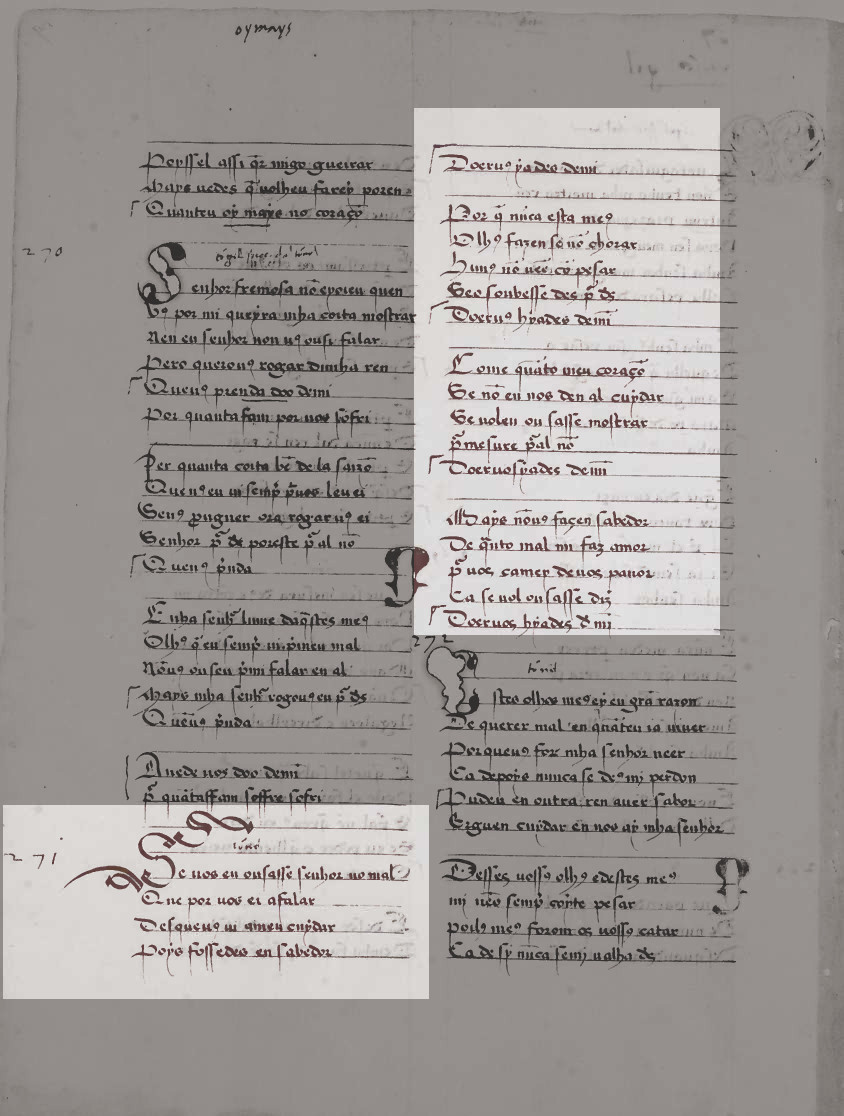 oymays
Poyssel assi q̃r migo gueirar
Mays uedes q̃ uolheu farey poren
Quanteu oy mays no coraçõ
270
Senhor fremosa nõ eyoieu quen
Vꝯ por mi queyra mha coita mostrar
Nen eu senhor non uꝯ ousi falar
Pero querouꝯ rogar dunha ren
Queuꝯ prenda doo demi
Por quanta fam por uos sofri
Per quanta coita bẽ de la sazõ
Quenꝯ eu ui semp̃ p̃uos leuei
Senꝯ prouguer ora rogar uꝯ ei
Senhor p̃ ds̃ poreste p̃ al nõ
Quenꝯ p̃nda
Enha senhr̃ lume daq̃stes meꝯ
Olhꝯ q̃ eu semp̃ ui p̃ meu mal
Nõuꝯ ouseu p̃mi falar en al
Mays mha senhr̃ rogouꝯ eu p̃ ds̃
Quẽuꝯ p̃nda
Auede uos doo demi
p̃ quãtaffam soffre sofri
271
Se uos eu ousasse senhor no mal
Que por uos ei afalar
Desqueuꝯ ui ameu cuydar
Poys fossedes en sabedor
Doeruꝯ yades demi
Por q̃ nũca esta meꝯ
Olhꝯ fazen se nõ chorar
Hunꝯ nõ ueẽ cõ pesar
Seo soubesse des p̃ ds̃
Doeruꝯ hyades demi
Come quãto meu coraçõ
Se nõ en uos den al cuydar
Se uolen ousasse mostrar
p̃ mesure p̃ al nõ
Doeruos yades demi
Mays nõuꝯ façen sabedor
De q̃nto mal mi faz amor
p̃ uos camer deuos pauor
Ca se uol ousasse diz̃
Doeruos hyades d̃ mi
272
Estes olhos meꝯ ey eu grã razon
De querer mal en quãteu ia uiuer
Porqueuꝯ forõ mha senhor ueer
Ca depoys nunca se dꝯ mj perdon
Pudeu en outra ren auer sabor
Erguen cuydar en uos ay mha senhor
Desses uossꝯ olhꝯ edestes meꝯ
mj ueo semp̃ coyte pesar
poilꝯ meꝯ forom os uossꝯ catar
Ca de sy nũca semj ualha ds̃